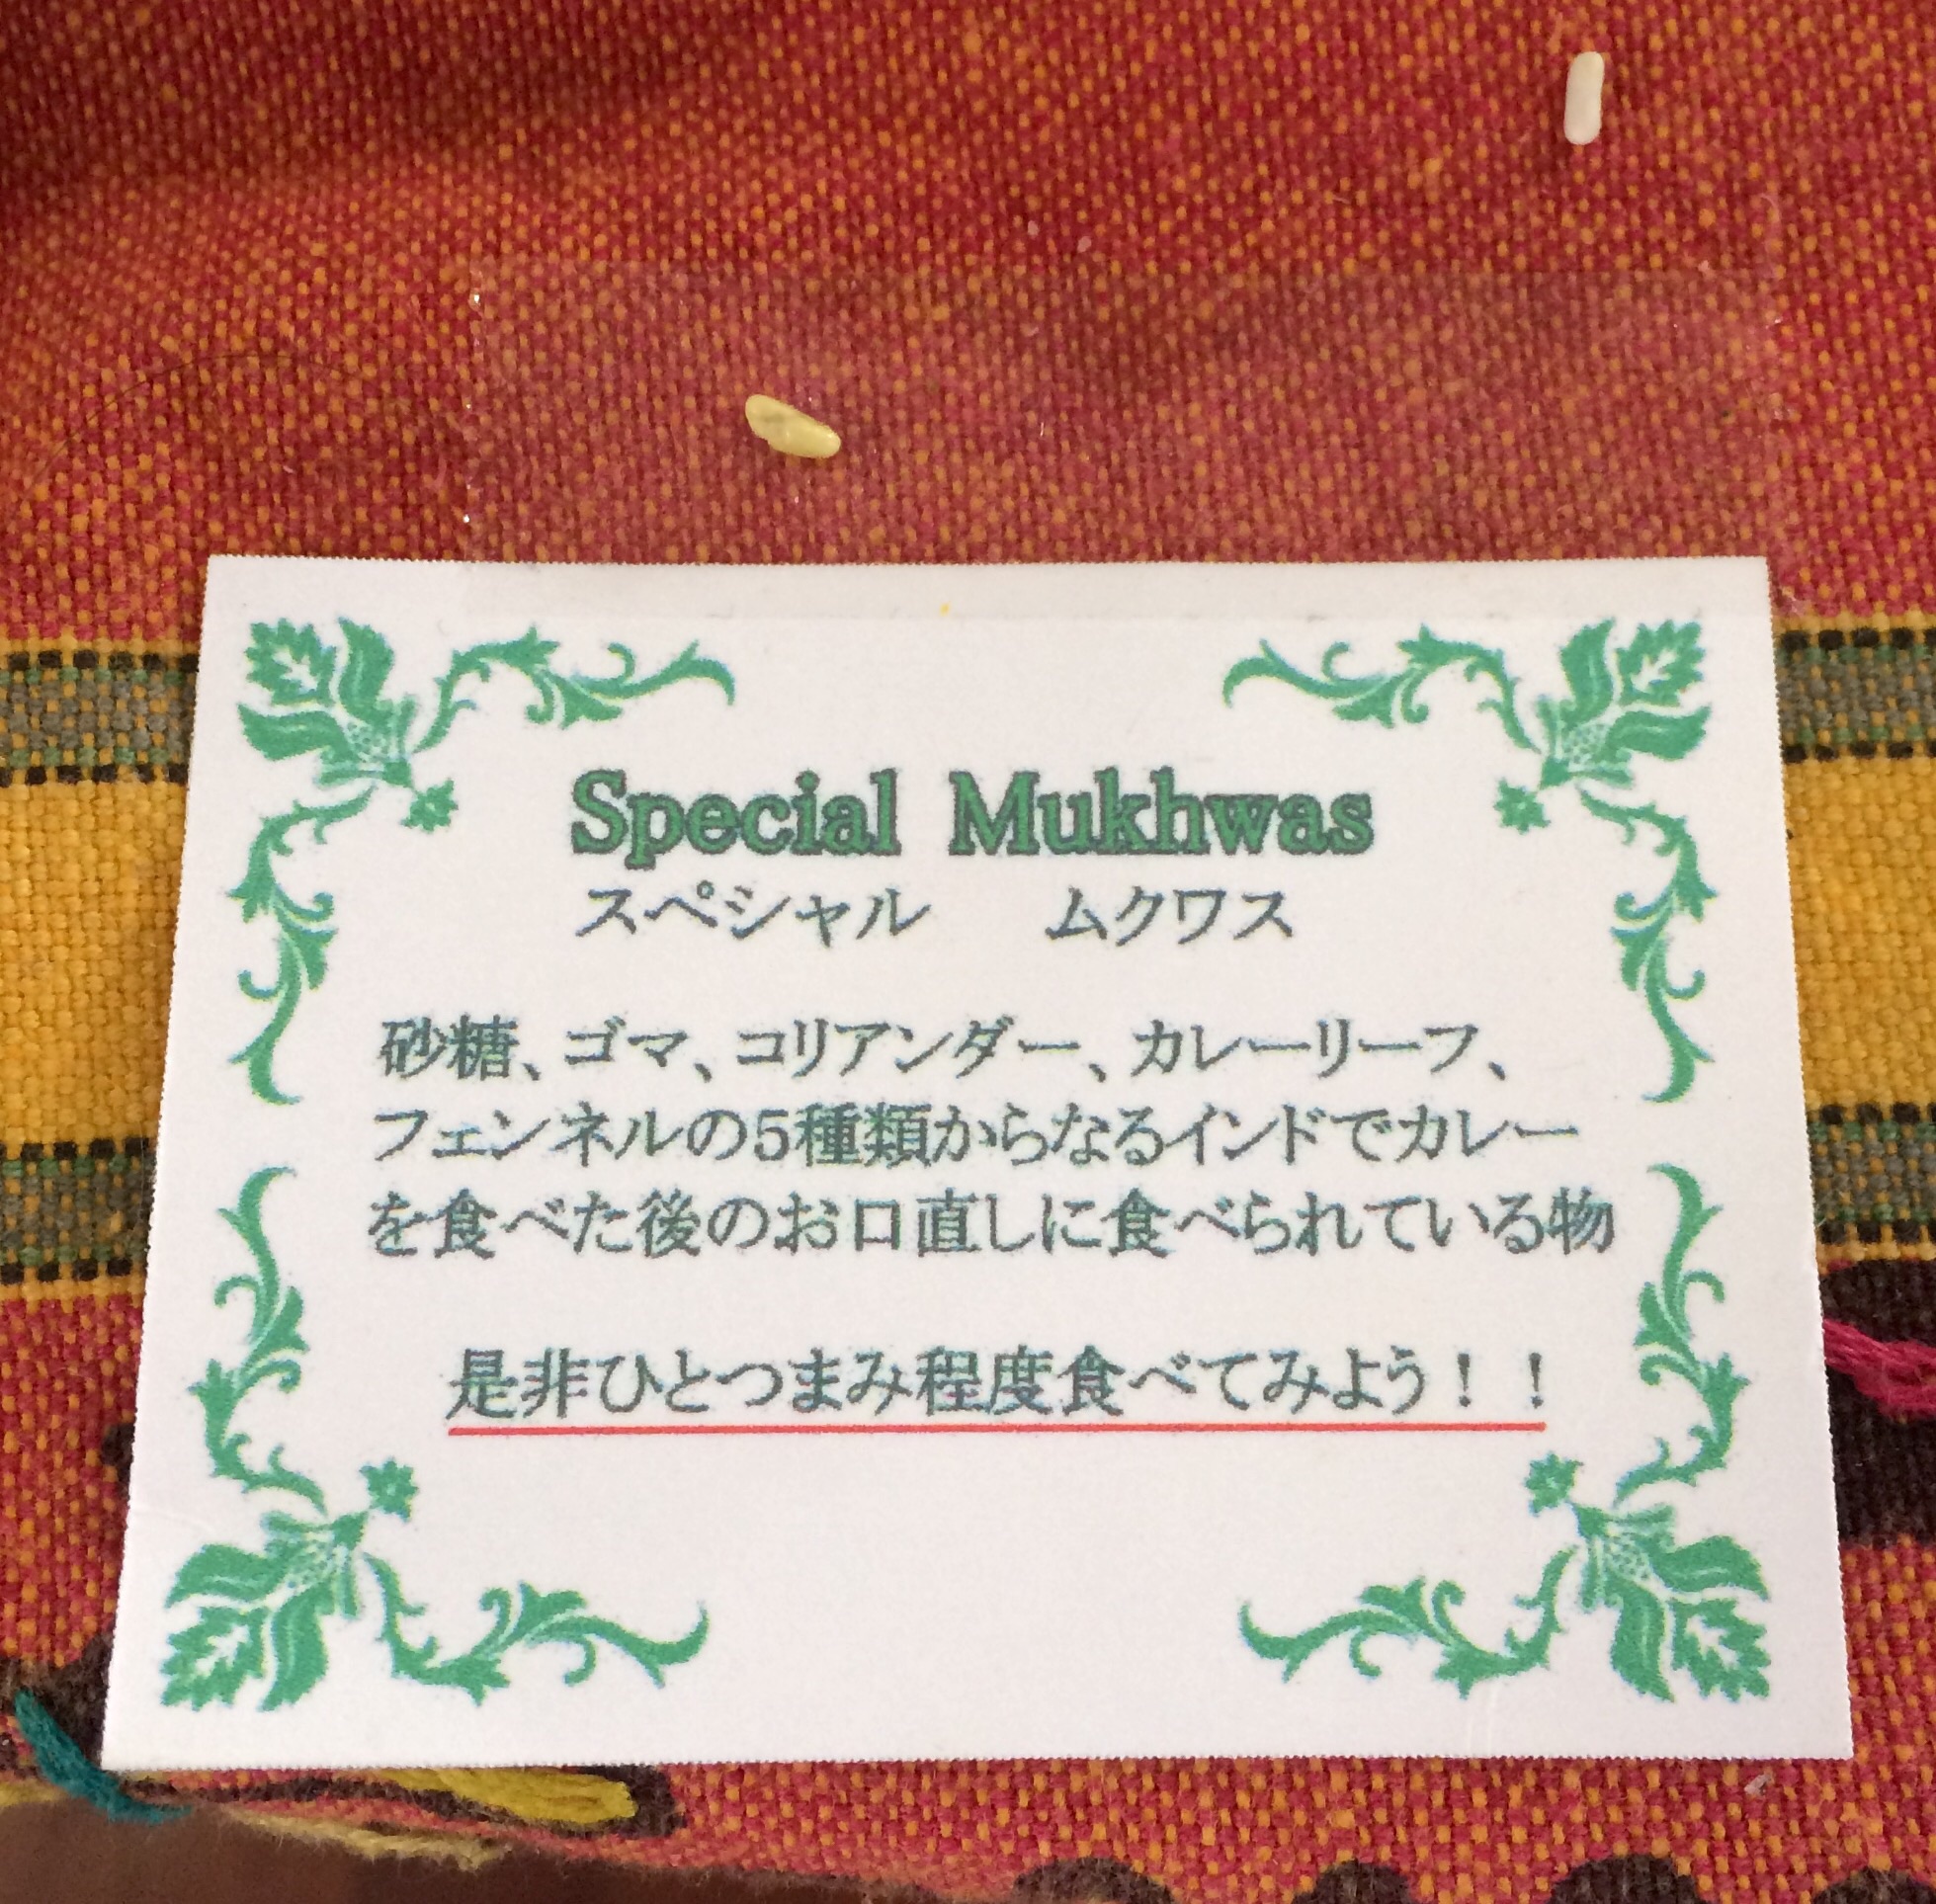 Special Mukhwas
スペシャル　ムクワス
砂糖、ゴマ、コリアンダー、カレーリーフ、
フェンネルの5種類からなるインドでカレー
を食べた後のお口直しに食べられている物
是非ひとつまみ程度食べてみよう！！